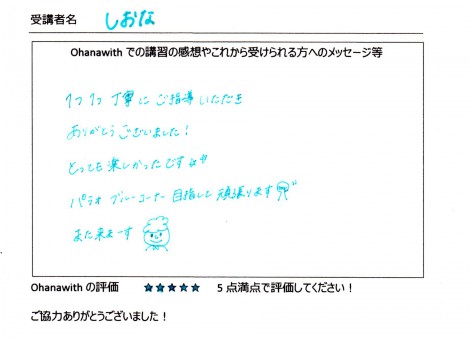 受講者名 しおな
Ohanawith での講習の感想やこれから受けられる方へのメッセージ等
1つ1つ 丁寧に ご指導いただき
ありがとうございました!
とっても楽しかったです
パラオ ブルーコーナー 目指して 頑張ります
また来まーす
Ohanawith の評価 ★★★★★ 5 点満点で評価してください!
ご協力ありがとうございました!